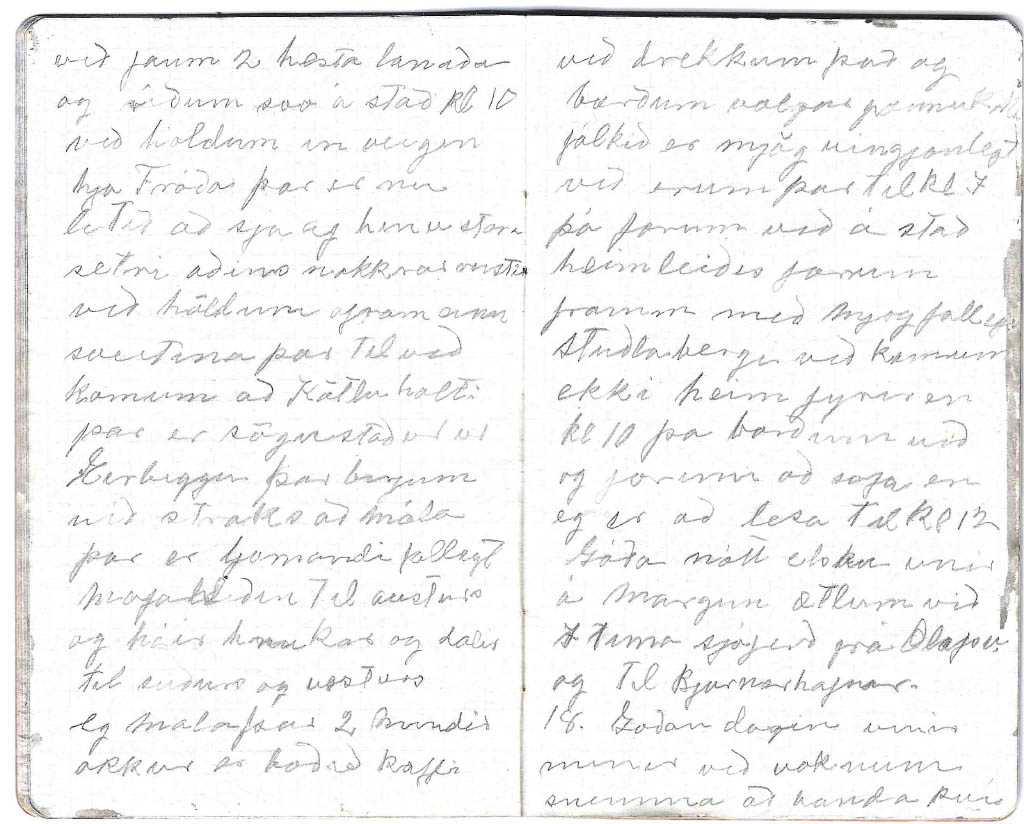 við faum 2 hesta lanada
og riðum svo á stað kl 10
við holdum in vegen
hja Fróda þar er nu
litið að sja af hinu stora
setri aðins nokkrar rusti
við höldum afram inn
sveitina þar til við
komum að Kötlu holti
þar er sögustadur ur
Eirbiggu þar byrjum
við straks að mála
þar er ljomandi fallegt
til austurs
og háir hnukar og dalir
til suðurs og vesturs
eg mala þar 2 mindir
okkur er boðið kaffi
við drekkum það og
borðum
fólkið er mjög vingjanlegt
við erum þar til kl 7
þá forum við á stað
heimleidis forum
framm með mjog falleg
Studlaberge við komum
ekki heim fyrir en
kl 10 þa bordum við
og forum að sofa en
eg er að lesa til kl 12
Góða nótt elsku vinir
á margun ætlum við
7 tima sjóferd frá Olafsv.
og til Bjarnarhafnar.
18. Godan dagin vinir
minir við voknum
snemma að vanda þvi